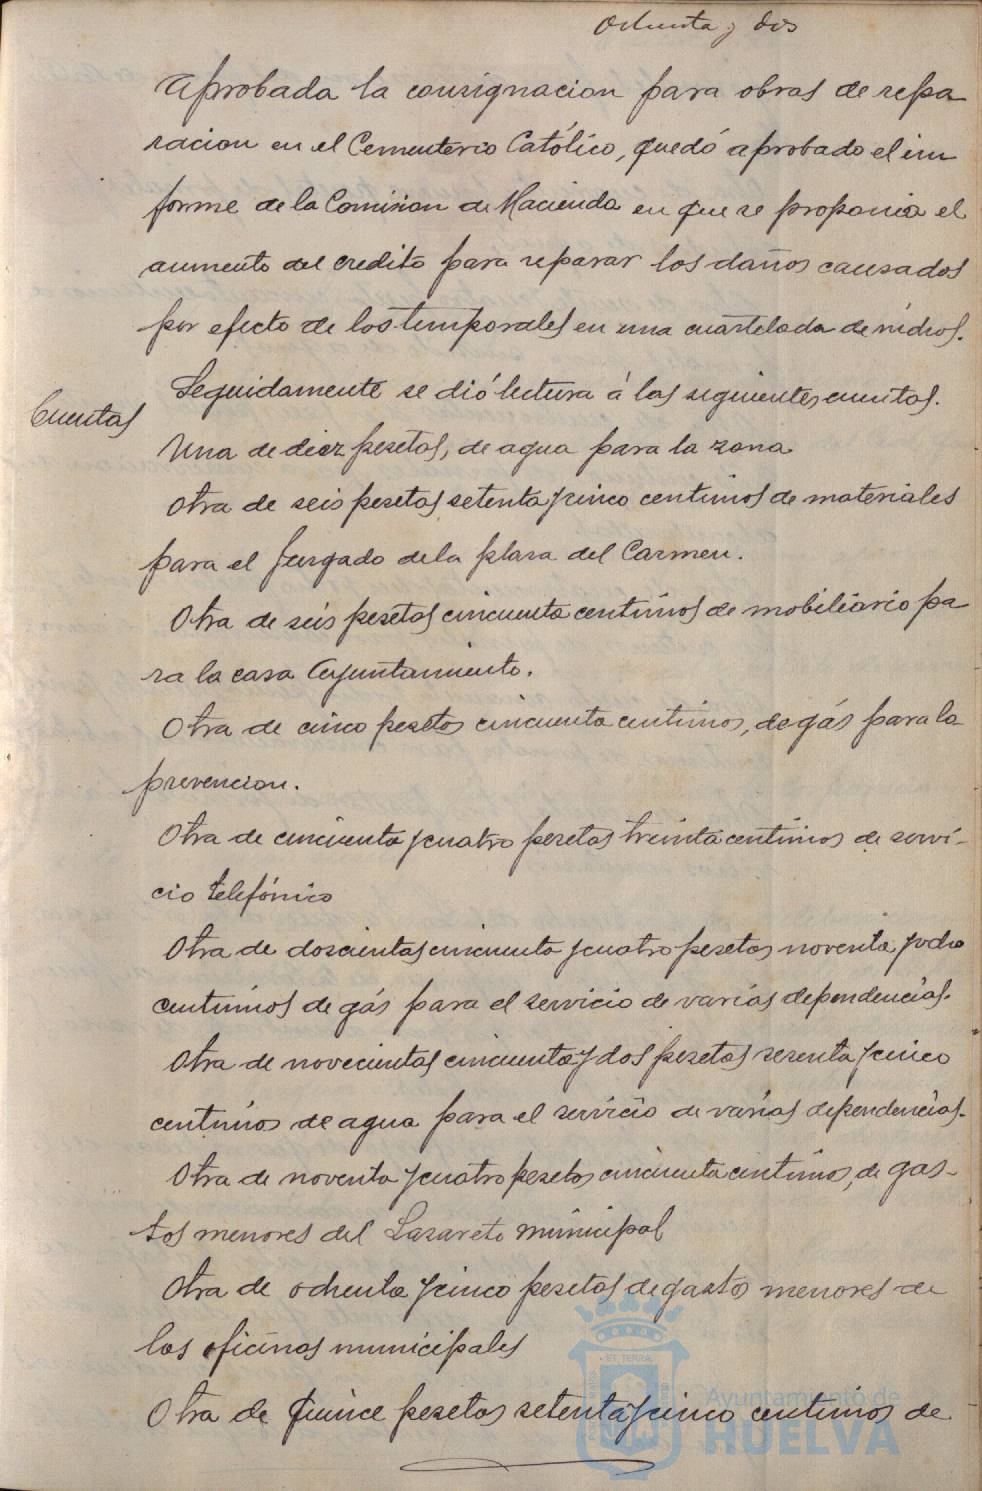 Ochenta y dos
Aprobada la consignacion para obras de repa
racion en el Cementerio Católico, quedó aprobado el in
forme de la Comision de Hacienda en que se proponia el
aumento del credito para reparar los daños causados
por efecto de los temporales en una cuartelada de nichos.
Cuentas
Seguidamente se dió lectura á las siguientes cuentas.
Una de diez pesetas, de agua para la zona
Otra de seis pesetas setenta y cinco centimos de materiales
para el Juzgado de la plaza del Carmen.
Otra de seis pesetas cincuenta centimos de mobiliario pa
ra la casa Ayuntamiento.
Otra de cinco pesetas cincuenta centimos, de gás para la
prevencion.
Otra de cincuenta y cuatro pesetas treinta centimos de servi-
cio telefónico
Otra de doscientas cincuenta y cuatro pesetas noventa y ocho
centimos de gás para el servicio de varias dependencias.
Otra de novecientas cincuenta y dos pesetas sesenta y cinco
centimos de agua para el servicio de varias dependencias.
Otra de noventa y cuatro pesetas cincuenta centimos, de gas-
tos menores del Lazareto municipal
Otra de ochenta y cinco pesetas de gastos menores de
las oficinas municipales
Otra de quince pesetas setenta y cinco centimos de
Ayuntamiento de
HUELVA